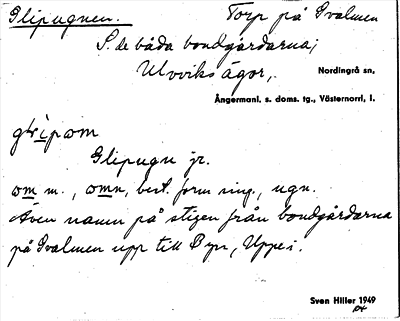 Glipugnen. Torp på Svalmen
S. de båda bondgårdarna;
Ulvviks ägor,. Nordingrå sn,
Ångermanl. s. doms. tg., Västernorrl, l.
Glipugn jr.
om m., omn, best. form sing., ugn.
Även namn på stigen från bondgårdarna
på Svalmen upp till Byn, Uppe i.
Sven Hiller 1949